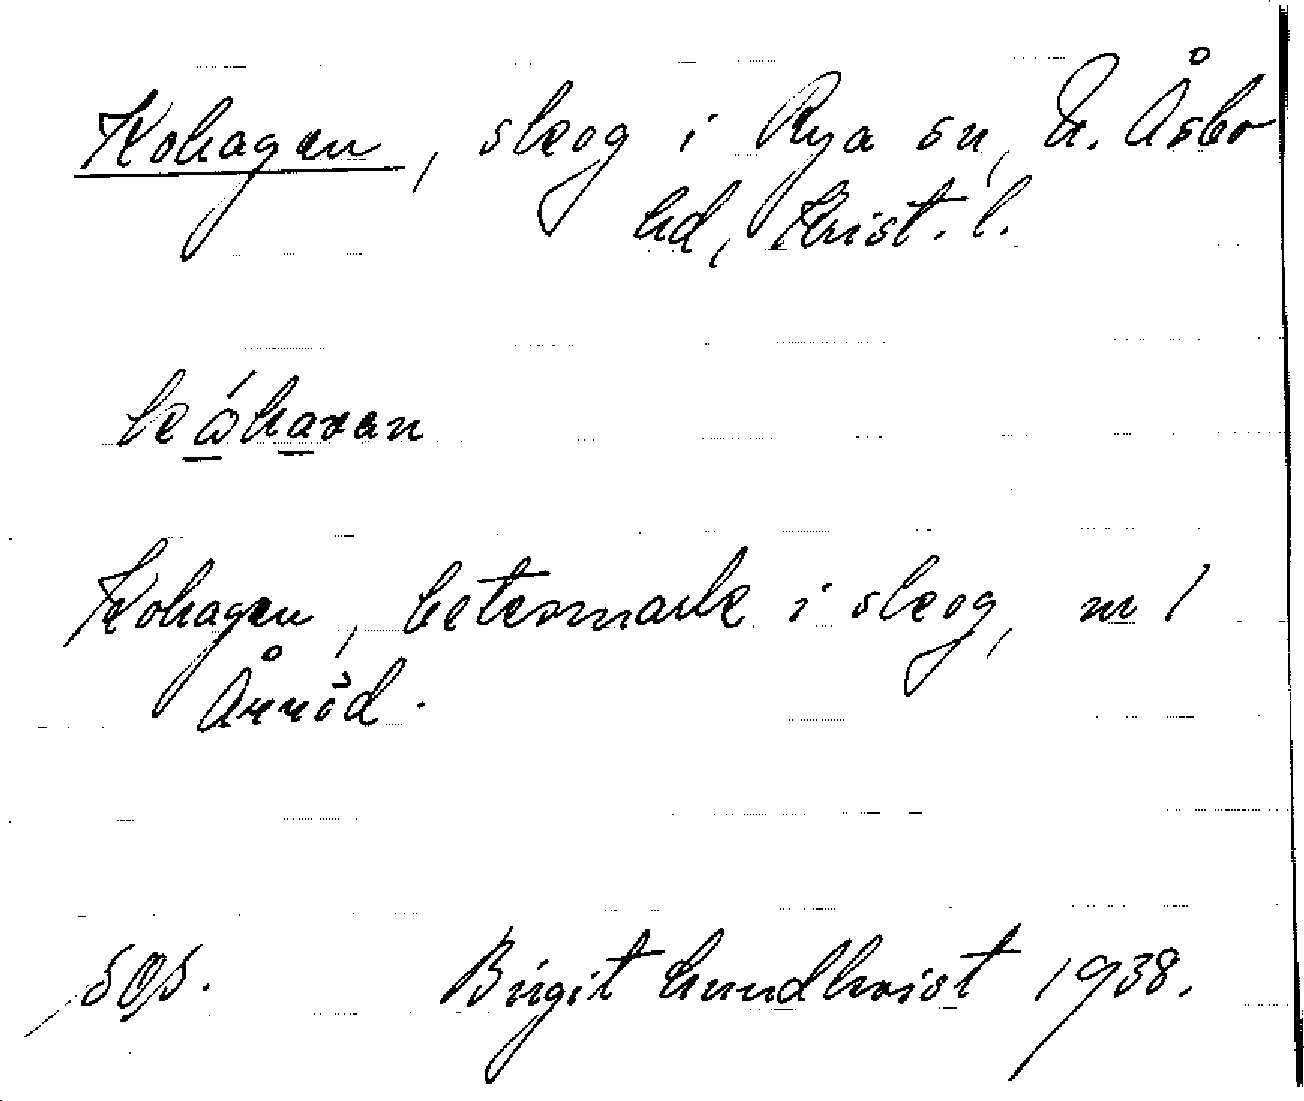 Kohagen, skog i Rya sn, N. Åsbo
hd, Krist. l.
kǫ́haven
Kohagen, betesmark i skog, nr 1
Årröd.
SOS. Birgit Lundkvist 1938.